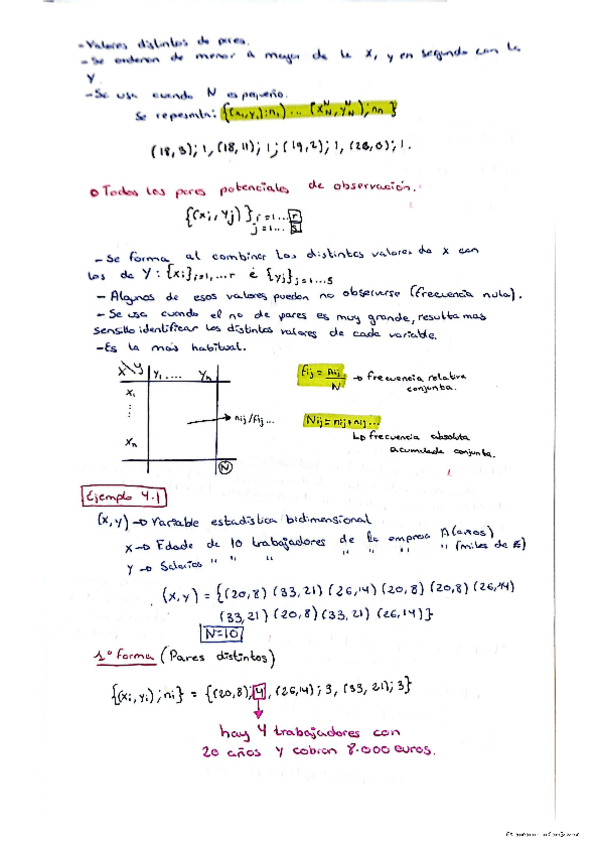 -Valores distintos de pares.
-Se ordenan de menor a mayor de la X, y en segundo con la
Y
-Se usa cuando N es pequeño.
Se representa: {(x₁,y₁);n₁) ... (x_N^N, y_N^N);n_n}
(18,3); 1, (18,11); 1; (19,2); 1, (20,0); 1.
Todos los pares potenciales de observación.
{(xi, yj)} i=1...r
j=1...s
-Se forma al combinar los distintos valores de x con
los de Y: {xi}i=1,...r e {yj}j=1...s
- Algunos de esos valores pueden no observarse (frecuencia nula).
- Se usa cuando el no de pares es muy grande, resulta mas
sensillo identificar los distintos valores de cada variable.
-Es la más habitual.
X\Y y₁.... Yn
x₁
⋮
xn
nij/fij...
N
fij = nij/N → frecuencia relativa
conjunta.
Nij = nij+nij...
↳ frecuencia absoluta
acumulada conjunta.
Ejemplo 4.1
(x,y) → Variable estadística bidimensional
X → Edade de 10 trabajadores de la empresa A (años)
Y → Salarios " " " " " " " (miles de €)
(x,y) = {(20,8) (33,21) (26,14) (20,8) (20,8) (26,14)
(33,21) (20,8) (33,21) (26,14)}
N=10
1º forma (Pares distintos)
{(xi, yi); ni} = {(20,8); 4, (26,14); 3, (33,21); 3}
hay 4 trabajadores con
20 años y cobran 8.000 euros.